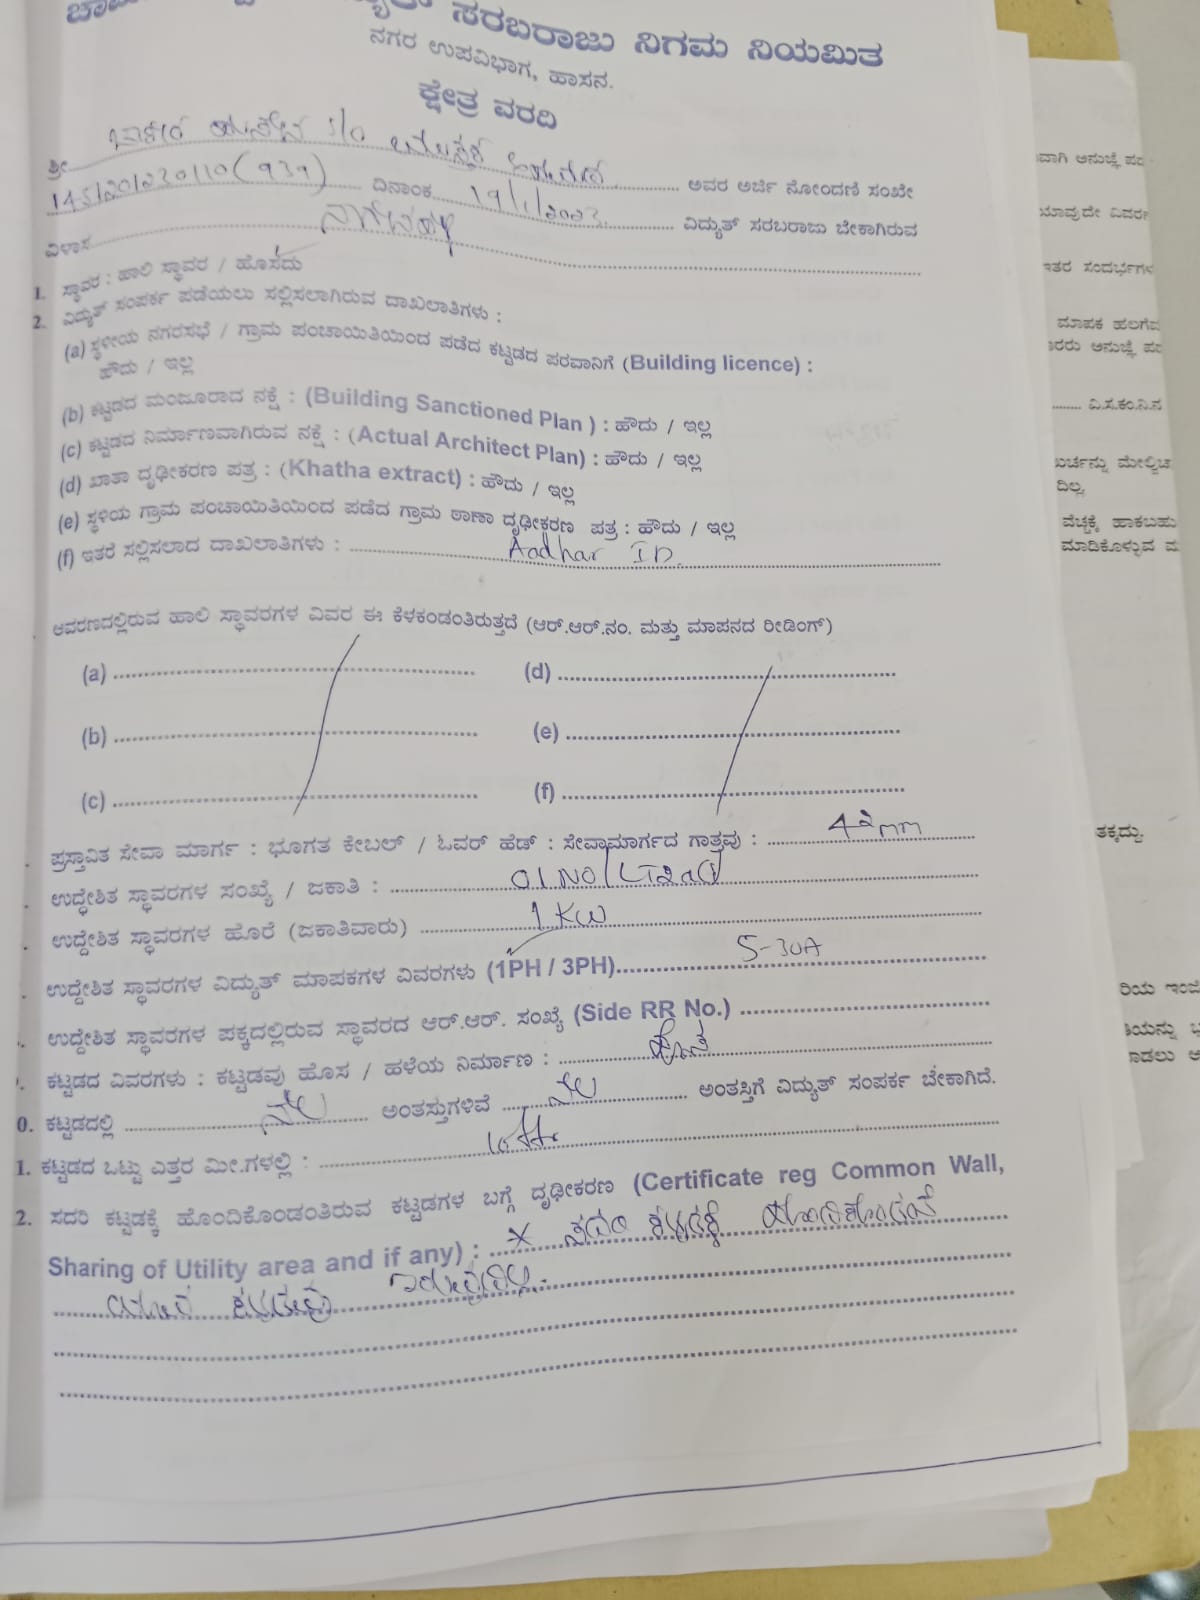 ಸರಬರಾಜು ನಿಗಮ ನಿಯಮಿತ
ನಗರ ಉಪವಿಭಾಗ, ಹಾಸನ.
ಕ್ಷೇತ್ರ ವರದಿ
ಶ್ರೀ S/o ಅವರ ಅರ್ಜಿ ನೋಂದಣಿ ಸಂಖೇ
145/20/230110(939) ದಿನಾಂಕ 19/1/2023 ವಿದ್ಯುತ್ ಸರಬರಾಜು ಬೇಕಾಗಿರುವ
ವಿಳಾಸ
1. ಸ್ಥಾವರ : ಹಾಲಿ ಸ್ಥಾವರ / ಹೊಸದು
2. ವಿದ್ಯುತ್ ಸಂಪರ್ಕ ಪಡೆಯಲು ಸಲ್ಲಿಸಲಾಗಿರುವ ದಾಖಲಾತಿಗಳು :
(a) ಸ್ಥಳೀಯ ನಗರಸಭೆ / ಗ್ರಾಮ ಪಂಚಾಯಿತಿಯಿಂದ ಪಡೆದ ಕಟ್ಟಡದ ಪರವಾನಿಗೆ (Building licence) :
ಹೌದು / ಇಲ್ಲ
(b) ಕಟ್ಟಡದ ಮಂಜೂರಾದ ನಕ್ಷೆ : (Building Sanctioned Plan ) : ಹೌದು / ಇಲ್ಲ
(c) ಕಟ್ಟಡದ ನಿರ್ಮಾಣವಾಗಿರುವ ನಕ್ಷೆ : (Actual Architect Plan) : ಹೌದು / ಇಲ್ಲ
(d) ಖಾತಾ ದೃಢೀಕರಣ ಪತ್ರ : (Khatha extract) : ಹೌದು / ಇಲ್ಲ
(e) ಸ್ಥಳಿಯ ಗ್ರಾಮ ಪಂಚಾಯಿತಿಯಿಂದ ಪಡೆದ ಗ್ರಾಮ ಠಾಣಾ ದೃಢೀಕರಣ ಪತ್ರ : ಹೌದು / ಇಲ್ಲ
(f) ಇತರೆ ಸಲ್ಲಿಸಲಾದ ದಾಖಲಾತಿಗಳು : Aadhar ID.
ಆವರಣದಲ್ಲಿರುವ ಹಾಲಿ ಸ್ಥಾವರಗಳ ವಿವರ ಈ ಕೆಳಕಂಡಂತಿರುತ್ತದೆ (ಆರ್.ಆರ್.ನಂ. ಮತ್ತು ಮಾಪನದ ರೀಡಿಂಗ್)
(a) (d)
(b) (e)
(c) (f)
ಪ್ರಸ್ತಾವಿತ ಸೇವಾ ಮಾರ್ಗ : ಭೂಗತ ಕೇಬಲ್ / ಓವರ್ ಹೆಡ್ : ಸೇವಾಮಾರ್ಗದ ಗಾತ್ರವು : 42mm
ಉದ್ಧೇಶಿತ ಸ್ಥಾವರಗಳ ಸಂಖ್ಯೆ / ಜಕಾತಿ : 01 NO/
ಉದ್ದೇಶಿತ ಸ್ಥಾವರಗಳ ಹೊರೆ (ಜಕಾತಿವಾರು) 1 KW
ಉದ್ದೇಶಿತ ಸ್ಥಾವರಗಳ ವಿದ್ಯುತ್ ಮಾಪಕಗಳ ವಿವರಗಳು (1PH / 3PH) 5-30A
ಉದ್ದೇಶಿತ ಸ್ಥಾವರಗಳ ಪಕ್ಕದಲ್ಲಿರುವ ಸ್ಥಾವರದ ಆರ್.ಆರ್. ಸಂಖ್ಯೆ (Side RR No.)
ಕಟ್ಟಡದ ವಿವರಗಳು : ಕಟ್ಟಡವು ಹೊಸ / ಹಳೆಯ ನಿರ್ಮಾಣ : ಹೊಸ
0. ಕಟ್ಟಡದಲ್ಲಿ ನೆಲ ಅಂತಸ್ತುಗಳಿವೆ ನೆಲ ಅಂತಸ್ತಿಗೆ ವಿದ್ಯುತ್ ಸಂಪರ್ಕ ಬೇಕಾಗಿದೆ.
1. ಕಟ್ಟಡದ ಒಟ್ಟು ಎತ್ತರ ಮೀ.ಗಳಲ್ಲಿ :
2. ಸದರಿ ಕಟ್ಟಡಕ್ಕೆ ಹೊಂದಿಕೊಂಡಂತಿರುವ ಕಟ್ಟಡಗಳ ಬಗ್ಗೆ ದೃಢೀಕರಣ (Certificate reg Common Wall,
Sharing of Utility area and if any) : ಸದರಿ ಕಟ್ಟಡಕ್ಕೆ
ಮಾಪಕ ಹಲಗೆ
ವಿ.ಸ.ಕಂ.ನಿ.ನ
ದಿಲ್ಲ.
ವೆಚ್ಚಕ್ಕೆ ಹಾಕಬಹು
ಮಾಡಿಕೊಳ್ಳುವ
ತಕ್ಕದ್ದು.